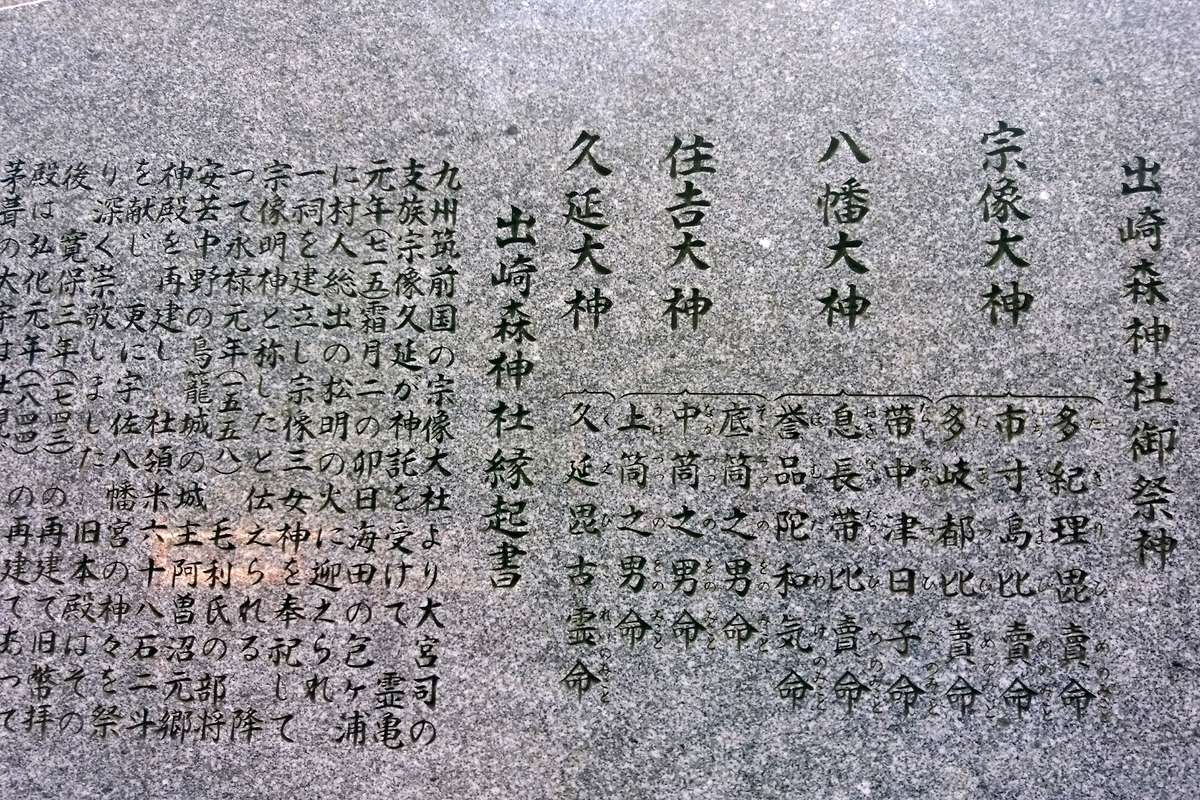 出崎森神社御祭神
宗像大神
多紀理毘賣命
市寸島比賣命
多岐都比賣命
八幡大神
帶中津日子命
息長帶比賣命
誉品陀和気命
住吉大神
底筒之男命
中筒之男命
上筒之男命
久延大神
久延毘古霊命
出崎森神社縁起書
九州筑前国の宗像大社より大宮司の
支族宗像久延が神託を受けて 霊亀
元年(七一五)霜月二の卯日海田の包ヶ浦
に村人総出の松明の火に迎えられ
一祠を建立し宗像三女神を奉祀して
宗像明神と称したと伝えられる 降
つて永禄元年(一五五八)毛利氏の部将
安芸中野の鳥籠城の城主阿曽沼元郷
神殿を再建し 社領米六十八石二斗
を献じ 更に宇佐八幡宮の神々を祭
り深く崇敬しました 旧本殿はその
後 寛保三年(一七四三)の再建で旧幣拝
殿は弘化元年(一八四四)の再建であって